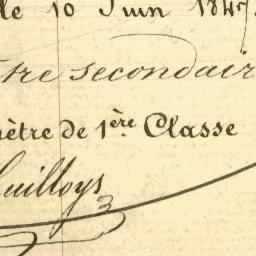 le 10 Juin 1847.
tre secondair
ètre de 1ère Classe
uilloys